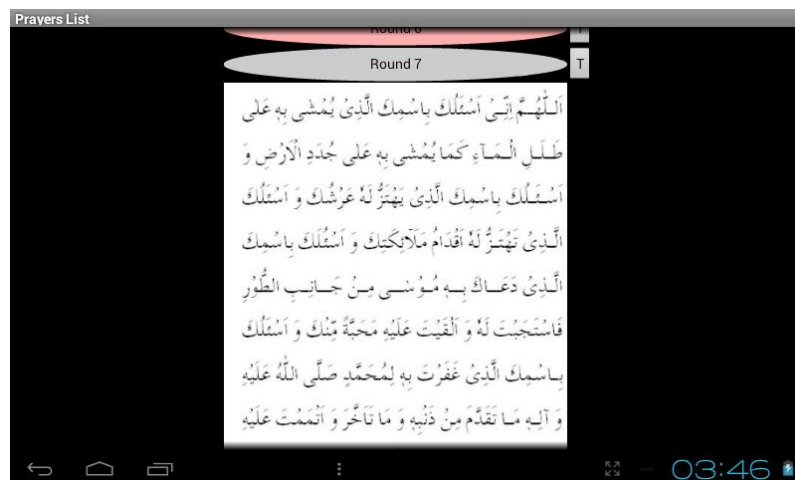 Prayers List
Round 6
T
Round 7
T
اَللّٰهُمَّ اِنِّىْ اَسْئَلُكَ بِاسْمِكَ الَّذِىْ يُمْشٰى بِهٖ عَلٰى
طَلَلِ الْمَآءِ كَمَا يُمْشٰى بِهٖ عَلٰى جُدَدِ الْاَرْضِ وَ
اَسْئَلُكَ بِاسْمِكَ الَّذِىْ يَهْتَزُّ لَهٗ عَرْشُكَ وَ اَسْئَلُكَ
الَّذِىْ تَهْتَزُّ لَهٗ اَقْدَامُ مَلَآئِكَتِكَ وَ اَسْئَلُكَ بِاسْمِكَ
الَّذِىْ دَعَاكَ بِهٖ مُوْسٰى مِنْ جَانِبِ الطُّوْرِ
فَاسْتَجَبْتَ لَهٗ وَ اَلْقَيْتَ عَلَيْهِ مَحَبَّةً مِّنْكَ وَ اَسْئَلُكَ
بِاسْمِكَ الَّذِىْ غَفَرْتَ بِهٖ لِمُحَمَّدٍ صَلَّى اللّٰهُ عَلَيْهِ
وَ آلِهٖ مَا تَقَدَّمَ مِنْ ذَنْۢبِهٖ وَ مَا تَاَخَّرَ وَ اَتْمَمْتَ عَلَيْهِ
03:46